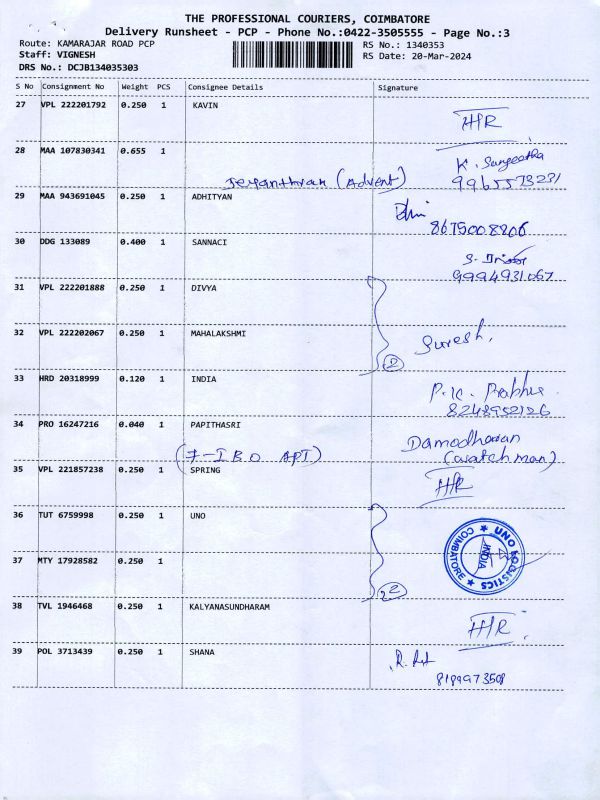 THE PROFESSIONAL COURIERS, COIMBATORE
Delivery Runsheet - PCP - Phone No.:0422-3505555 - Page No.:3
Route: KAMARAJAR ROAD PCP
RS No.: 1340353
Staff: VIGNESH
RS Date: 20-Mar-2024
DRS No.: DCJB134035303
S No Consignment No Weight PCS Consignee Details Signature
27 VPL 222201792 0.250 1 KAVIN
H/R
28 MAA 107830341 0.655 1
K. Sangeetha
Jeyanthran (Advent) 9965573231
29 MAA 943691045 0.250 1 ADHITYAN
8675008206
30 DDG 133089 0.400 1 SANNACI
9994931067
31 VPL 222201888 0.250 1 DIVYA
32 VPL 222202067 0.250 1 MAHALAKSHMI
Suresh,
2
33 HRD 20318999 0.120 1 INDIA
P.K. Prabhu
8248952126
34 PRO 16247216 0.040 1 PAPITHASRI
Damodharan
(7-IBO APT) (watchman)
35 VPL 221857238 0.250 1 SPRING
H/R
36 TUT 6759998 0.250 1 UNO
UNO LOGISTICS ★ COIMBATORE ★
INDIA
37 MTY 17928582 0.250 1
2
38 TVL 1946468 0.250 1 KALYANASUNDHARAM
H/R
39 POL 3713439 0.250 1 SHANA
8189973508